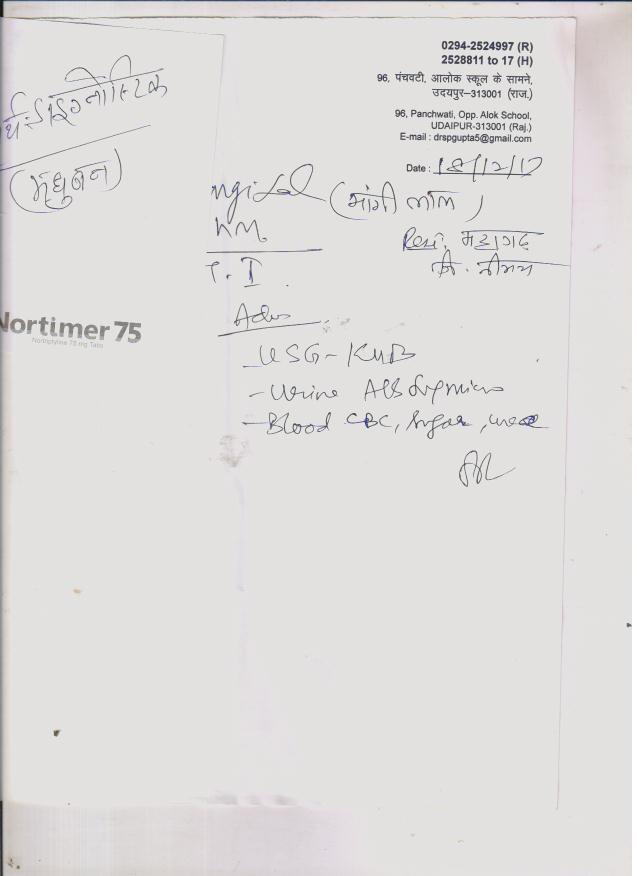 0294-2524997 (R)
2528811 to 17 (H)
96, पंचवटी, आलोक स्कूल के सामने,
उदयपुर–313001 (राज.)
96, Panchwati, Opp. Alok School,
UDAIPUR-313001 (Raj.)
E-mail : drspgupta5@gmail.com
Date : 18/12/17
डाइग्नोस्टिक
(मधुबन)
ngilal (मांगी लाल)
Resi.
Nortimer 75
Nortriptyline 75 mg Tabs
USG - KUB
- Urine Alb Sug micro
- Blood CBC, Sugar, urea